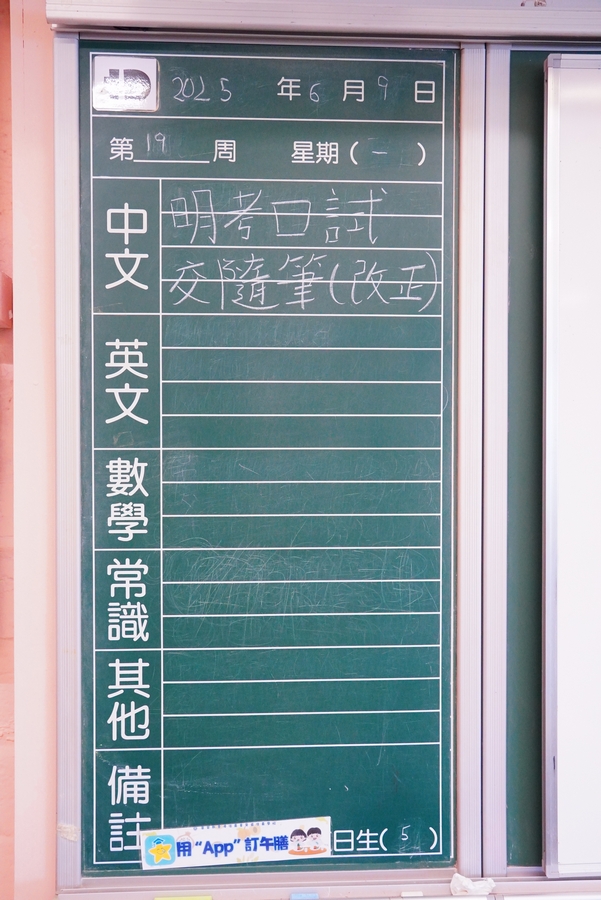 2025 年 6 月 9 日
第 19 周 星期 ( 一 )
中文
明考口試
交隨筆(改正)
英文
數學
常識
其他
備註
用“App”訂午膳
日生( 5 )